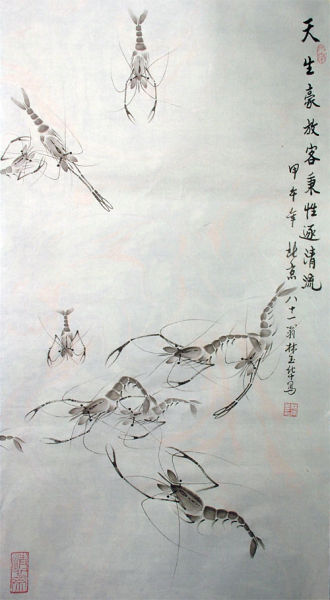 天生豪放客秉性逐清流
甲午年於北京八十一翁林玉華写